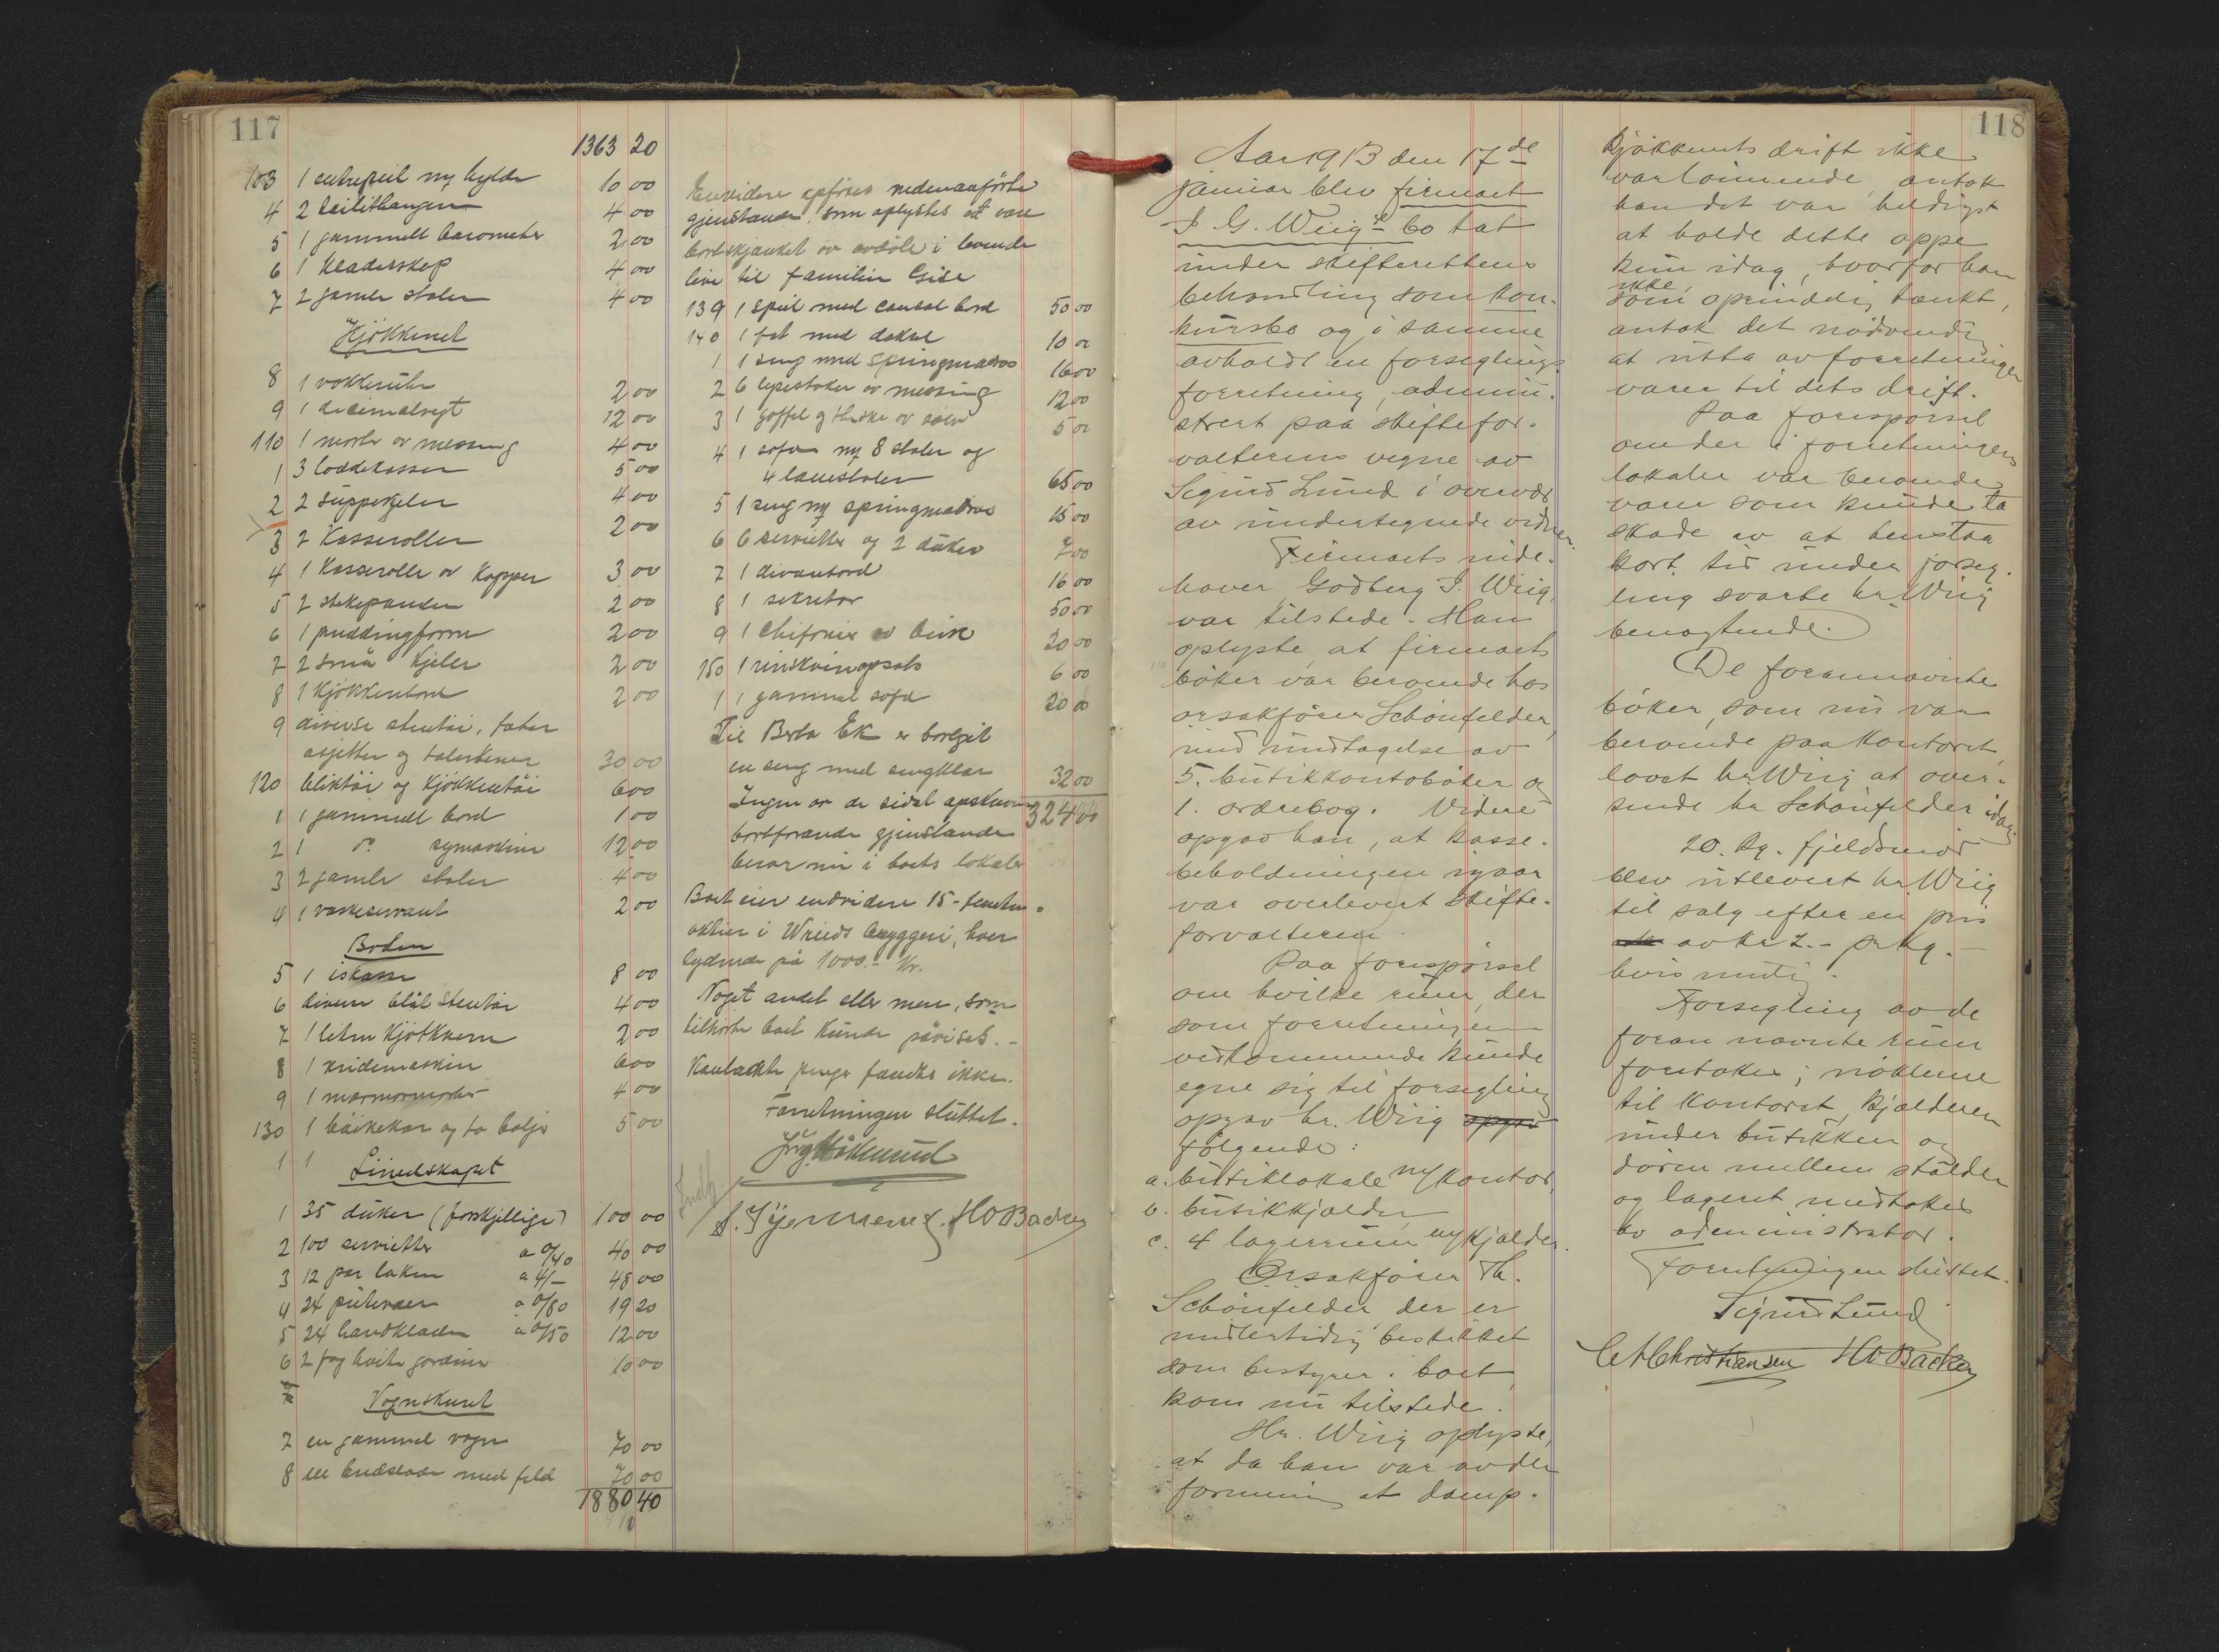 117
1363 20
103 1 entrespeil m/ hylde 10 00
4 2 10 4 00
5 1 gammelt barometer 2 00
6 1 klædesskap 4 00
7 2 gamle stoler 4 00
Kjøkkenet
8 1 vækkeruhr 2 00
9 1 decimalvegt 12 00
110 1 morter av messing 4 00
1 3 loddekasser 5 00
2 2 suppekjeler 4 00
3 2 Kasseroller 2 00
4 1 Kasserolle av Kopper 3 00
5 2 stekepander 2 00
6 1 puddingform 2 00
7 2 små Kjeler 2 00
8 1 Kjøkkenbord 2 00
9 diverse stentøi, fater
asjetter og tallerkener 30 00
120 bliktøi og Kjøkkentøi 6 00
1 1 gammelt bord 1 00
2 1 do symaskine 12 00
3 2 gamle stoler 4 00
4 1 vaskeservant 2 00
Boden
5 1 iskasse 8 00
6 diverse blåt stentøi 4 00
7 1 liten Kjøtkvern 2 00
8 1 maskin 6 00
9 1 marmormorter 4 00
130 1 bakekar og to baljer 5 00
1 1
Linnedskapet
1 35 duker (forskjellige) 100 00
2 100 servietter a 0/40 40 00
3 12 par laken a 4/- 48 00
4 24 putevaer a 0/80 19 20
5 24 handklæder a 0/50 12 00
6 2 fag hvite gardiner 10 00
Vognskuret
7 en gammel vogn 70 00
8 en bredslæde med feld 70 00
1880 40
Envidere opføres nedenanførte
gjenstander, som oplystes at være
bortskjænket av avdøde i levende
live til familien Gise
139 1 speil med consol bord 50 00
140 1 fat med deksel 10 00
1 1 seng med springmadras 16 00
2 6 lysestaker av messing 12 00
3 1 gaffel og theske av sølv 5 00
4 1 sofa m/ 8 stoler og
4 lænestoler 65 00
5 1 seng m/ springmadras 15 00
6 6 servietter og 2 duker 7 00
7 1 divanbord 16 00
8 1 sekretær 50 00
9 1 chifonier av birk 20 00
150 1 6 00
1 1 gammel sofa 20 00
Til Berta Ek er bortgit
en seng med sengklær 32 00
Ingen av de sidst opskrevne 324 00
bortforærede gjenstande
beror nu i boets lokaler
Boet eier endvidere 15 - femten -
aktier i Wrieds bryggeri, hver
lydende på 1000.- Kr.
Noget andet eller mere, som
tilhørte boet kunde påvises. -
Kontante penge fandtes ikke.
Forretningen sluttet.
HO Backer
118
Aar 1913 den 17de
januar blev firmaet
I. G. Wiigs bo tat
under skifterettens
behandling som kon-
kursbo og i samme
avholdt en forseglings
forretning, admini-
strert paa skiftefor-
valterens vegne av
Sigurd Lund i overvær
av undertegnede vidner.
Firmaets inde-
haver, Godberg I. Wiig,
var tilstede. Han
oplyste, at firmaets
bøker var beroende hos
orsakfører Schönfelder,
med undtagelse av
5. butikkontobøker og
1. ordrebog. Videre
opgav han, at kasse-
beholdningen igaar
var overlevert skifte-
forvalteren.
Paa forespørsel
om hvilke rum, der
som forretningen
vedkommende kunde
egne sig til forsegling
opgav hr. Wiig opgav
følgende:
a. butiklokale m/ kontor,
b. butikkjælder
c. 4 lagerrum m/ kjælder.
Orsakfører Th.
Schönfelder der er
midlertidig beskikket
som bestyrer i boet,
kom nu tilstede.
Hr. Wiig oplyste,
at da han var av den
formening at damp-
kjøkkenets drift ikke
var lønnende, antok
han det var heldigst
at holde dette oppe
kun idag, hvorfor han
ikke,
som oprindelig tænkt,
antok det nødvendig
at utta av forretningen
varer til dets drift.
Paa forespørsel
om der i forretningens
lokaler var beroende
varer som kunde ta
skade av at henstaa
kort tid under forseg-
ling svarte hr. Wiig
benegtende.
De forannævnte
bøker, som nu var
beroende paa kontoret,
lovet hr. Wiig at over-
sende hr. Schönfelder idag.
20. kg. fjeldsmør
blev utlevert hr. Wiig
til salg efter en pris
av kr 2.- pr kg. -
Forsegling av de
foran nævnte rum
foretokes; nøklene
til kontoret, kjælderen
under butikken og
døren mellem stalden
og lageret medtokes
av administrator.
Forretningen sluttet.
Sigurd Lund
C A Christiansen HO Backer